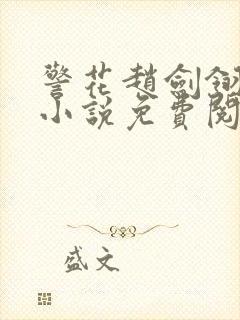 警花趙劍釵
小說免費閱
盛文